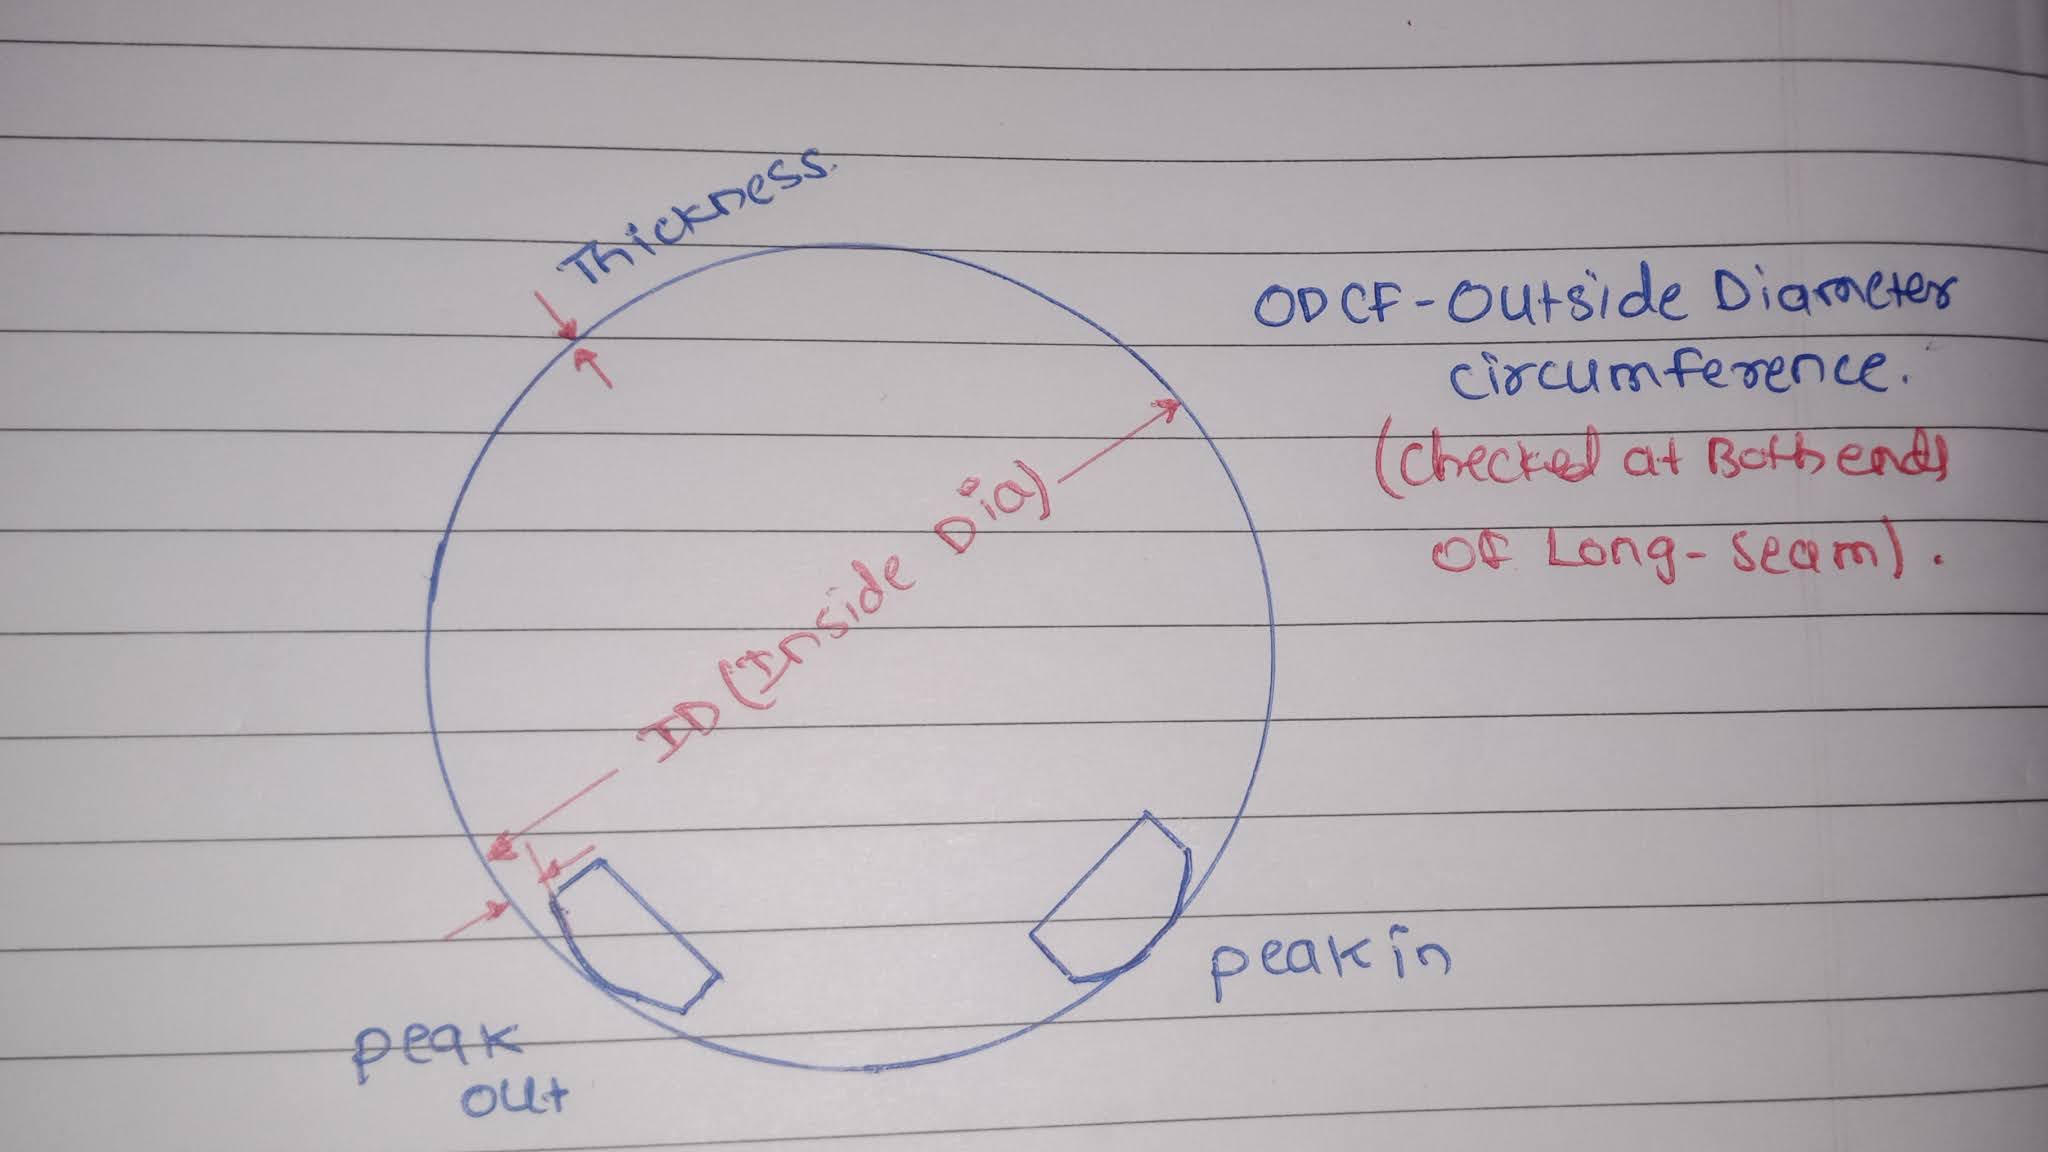 Thickness.
ODCF-Outside Diameter
circumference.
(Checked at Both ends
OF Long-Seam).
ID (Inside Dia)
peak in
peak
out